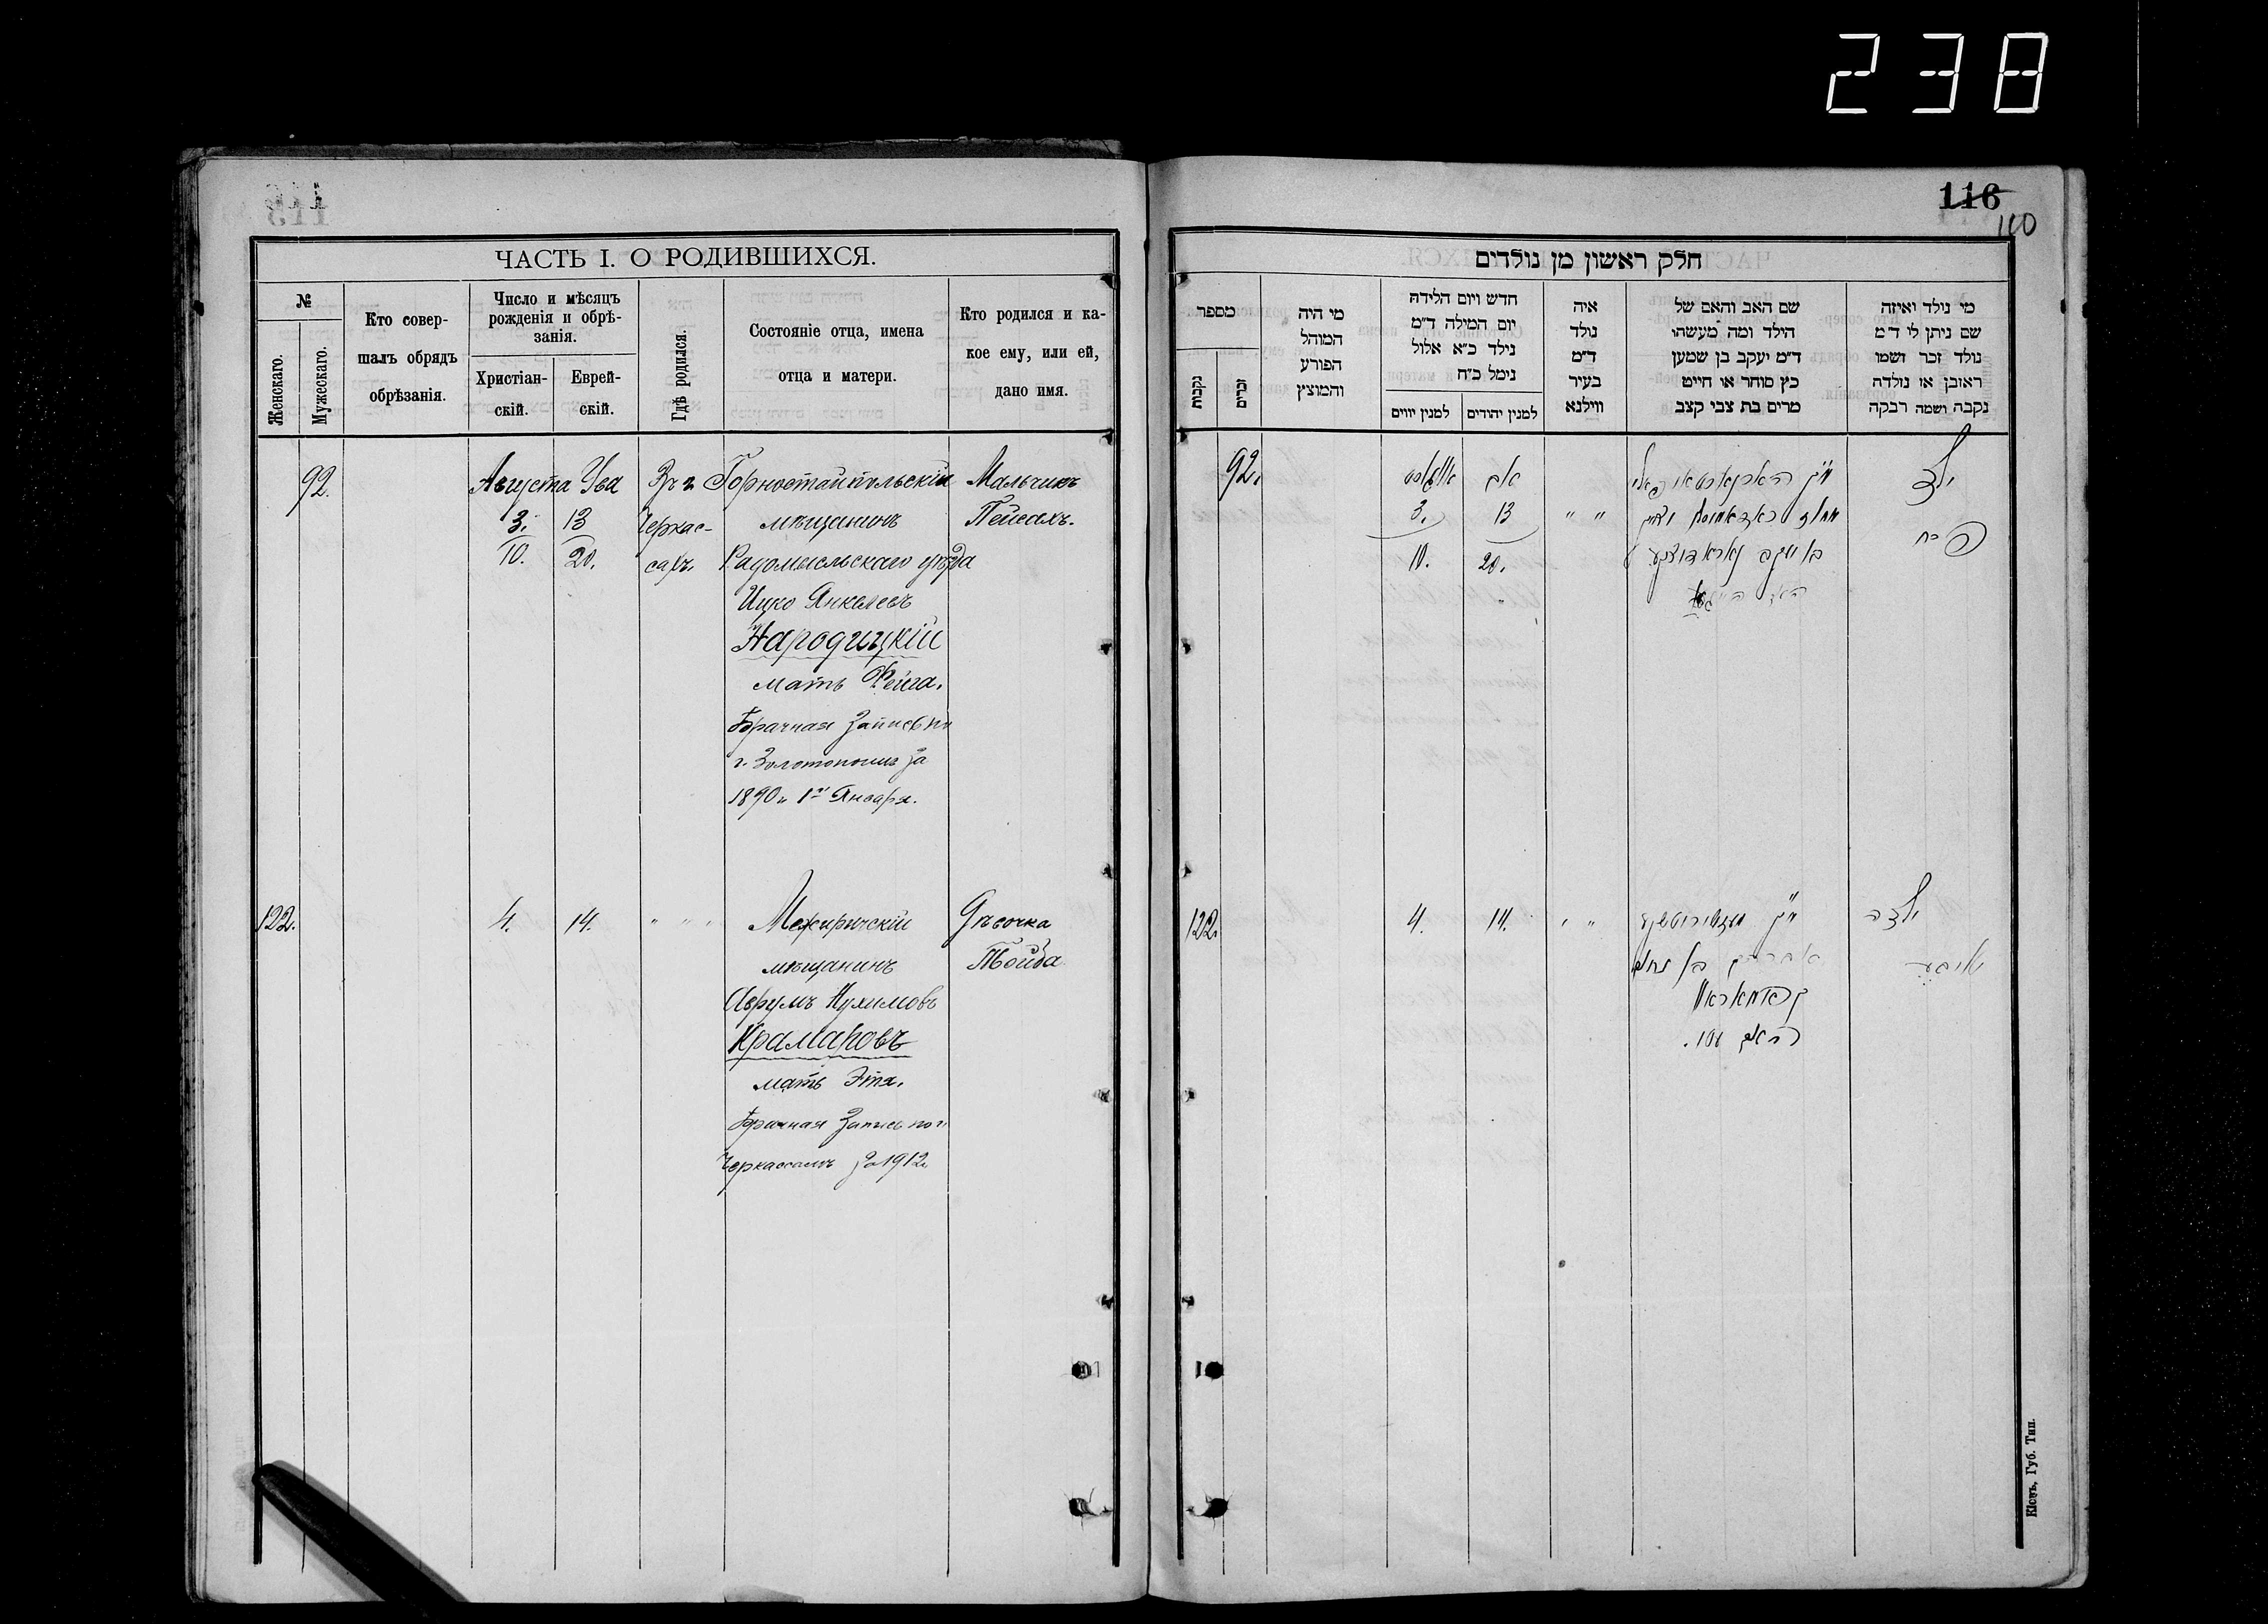 238
116
110
ЧАСТЬ I. О РОДИВШИХСЯ.
№
Женскаго.
Мужескаго.
Кто совер-
шалъ обрядъ
обрѣзанія.
Число и мѣсяцъ
рожденія и обрѣ-
занія.
Христіан-
скій.
Еврей-
скій.
Гдѣ родился.
Состояніе отца, имена
отца и матери.
Кто родился и ка-
кое ему, или ей,
дано имя.
92.
Августа
3.
10.
13
20.
Въ г.
Черкас-
сахъ.
Горностайпольскій
мѣщанинъ
Радомысльскаго уѣзда
Ицко Янкелевъ
Народицкій
мать Фейга.
Брачная Запись по
г. Золотоноша за
1890 г. 1 Января.
Мальчикъ
Пейсахъ.
122.
4.
14.
" " "
Межиричскій
мѣщанинъ
Аврумъ Нухимовъ
Крамаровъ
мать Этя.
Брачная Запись по г.
Черкассамъ за 1912 г.
Дѣвочка
חלק ראשון מן נולדים
מספר
נקבות
זכרים
מי היה
המוהל
הפורע
והמוצץ
חדש ויום הלידה
יום המילה ד״מ
נילד כ״א אלול
נימל כ״ח
למנין יווים
למנין יהודים
איה
נולד
ד״מ
בעיר
ווילנא
שם האב והאם של
הילד ומה מעשהו
ד״מ יעקב בן שמען
כץ סוחר או חייט
מרים בת צבי קצב
מי נולד ואיזה
שם ניתן לו ד״מ
נולד זכר ושמו
ראובן או נולדה
נקבה ושמה רבקה
92.
אויגוסט
3.
10.
אב
13
20.
" "
ילד
פסח
122.
4.
14.
" "
אברהם בן נחום
ילדה
Кіевъ, Губ. Тип.